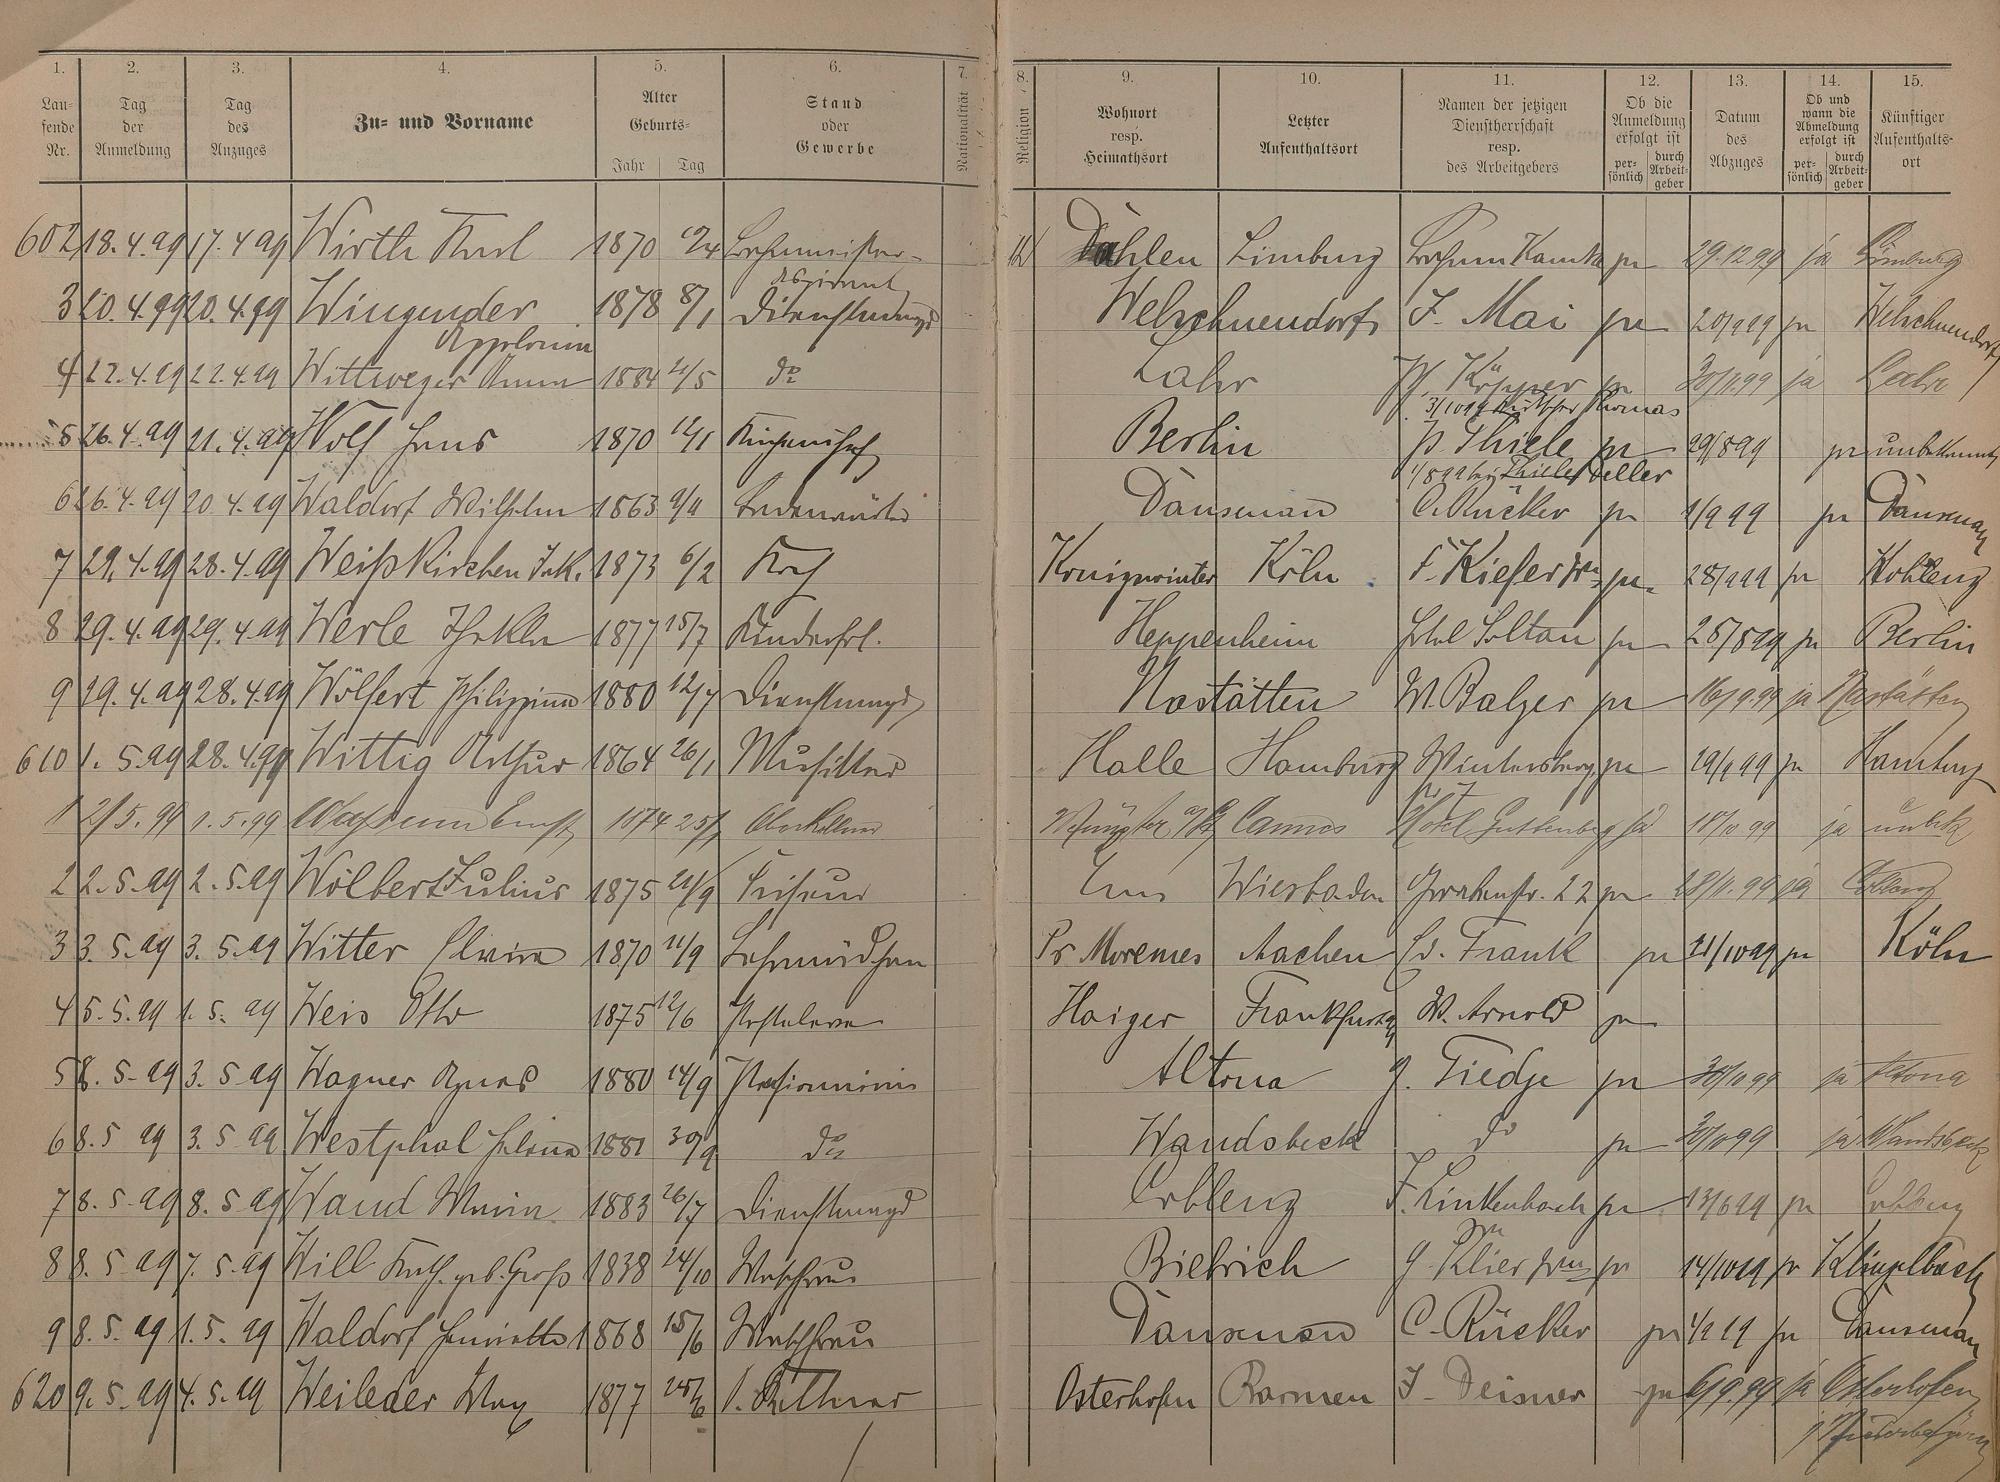 1. 2. 3. 4. 5. 6. 7. 8. 9. 10. 11. 12. 13. 14. 15.
Lau-
fende
Nr.
Tag
der
Anmeldung
Tag
des
Anzuges
Zu- und Vorname
Alter
Geburts-
Jahr Tag
Stand
oder
Gewerbe
Nationalität
Religion
Wohnort
resp.
Heimathsort
Letzter
Aufenthaltsort
Namen der jetzigen
Dienstherrschaft
resp.
des Arbeitgebers
Ob die
Anmeldung
erfolgt ist
per-
sönlich
durch
Arbeit-
geber
Datum
des
Abzuges
Ob und
wann die
Abmeldung
erfolgt ist
per-
sönlich
durch
Arbeit-
geber
Künftiger
Aufenthalts-
ort
602 18. 4. 99 17. 4 99 Wirth Karl 1870 Bahnmeister- Dahlen Limburg 29.12.99 ja Limburg
aspirant
3 20. 4. 99 20. 4. 99 Wingender 1878 8/1 Dienstmagd Welschneudorf J. Mai ja 20/9 99 ja Welschneudorf
Appolonia
4 22. 4. 99 22. 4. 99 Wittweger Anna 1884 21/5 do Lahr Köpper ja 30/11.99 ja Lahr
Thomas
5 26. 4. 99 21. 4. 99 Wolf Hans 1870 12/1 Küchenchef Berlin P. Thiele ja 29/8 99 ja unbekannt
6 26. 4. 99 20 4. 99 Waldorf Wilhelm 1863 9/11 Badewärter Dausenau C. Rücker ja 1/9 99 ja Dausenau
7 29. 4. 99 28. 4. 99 Weißkirchen Jak. 1873 6/2 Koch Königswinter Köln F. Kiefer ja 28/9 99 ja Koblenz
8 29. 4. 99 29. 4 99 Werle Thekla 1877 15/7 Kinderfrl. Heppenheim Hotel Soltau ja 25/8 99 ja Berlin
9 29. 4. 99 28. 4. 99 Wölfert Philippine 1880 12/7 Dienstmagd Nastätten W. Balzer ja 16/9.99 ja Nastätten
610 1. 5. 99 28. 4. 99 Wittig Arthur 1864 26/1 Musiker Halle Hamburg Wintersberg ja 29/9 99 ja Hamburg
1 2/5. 99 1. 5. 99 Ernst 1874 Oberkellner Cannes Hotel Guttenberg ja 18/10 99 ja unbek
2 2. 5. 99 2. 5. 99 Wölbert Julius 1875 21/9 Friseur Ems Wiesbaden Grabenstr. 22 ja 28/11. 99 ja Coblenz
3 3. 5. 99 3. 5. 99 Witter Elvira 1870 11/9 Lehrmädchen Aachen Ed. Frank ja 21/10 99 ja Köln
4 5. 5. 99 1. 5. 99 Weis Otto 1875 12/6 Posteleve Haiger Frankfurt W. Arnold ja
5 8. 5. 99 3. 5 99 Wagner Agnes 1880 14/9 Pensionärin Altona J. Tiedje ja 30/11 99 ja Altona
6 8. 5 99 3. 5 99 Westphal Helene 1881 30/9 do Wandsbeck do ja 30/11 99 ja Wandsbeck
7 8. 5. 99 8. 5 99 Wand Maria 1883 26/7 Dienstmagd Coblenz J. Linkenbach ja 13/6 99 ja Coblenz
8 8. 5 99 7. 5. 99 Will Kath. geb. Groß 1838 24/10 Waschfrau Biebrich G. Klier ja 14/10 99 ja Klingelbach
9 8. 5. 99 1. 5. 99 Waldorf Henriette 1868 15/6 Waschfrau Dausenau C. Rücker ja 1/9 99 ja Dausenau
620 9. 5. 99 4. 5. 99 Weileder Max 1877 Osterhofen Barmen J. Deisner ja 6/9.99 ja Osterhofen